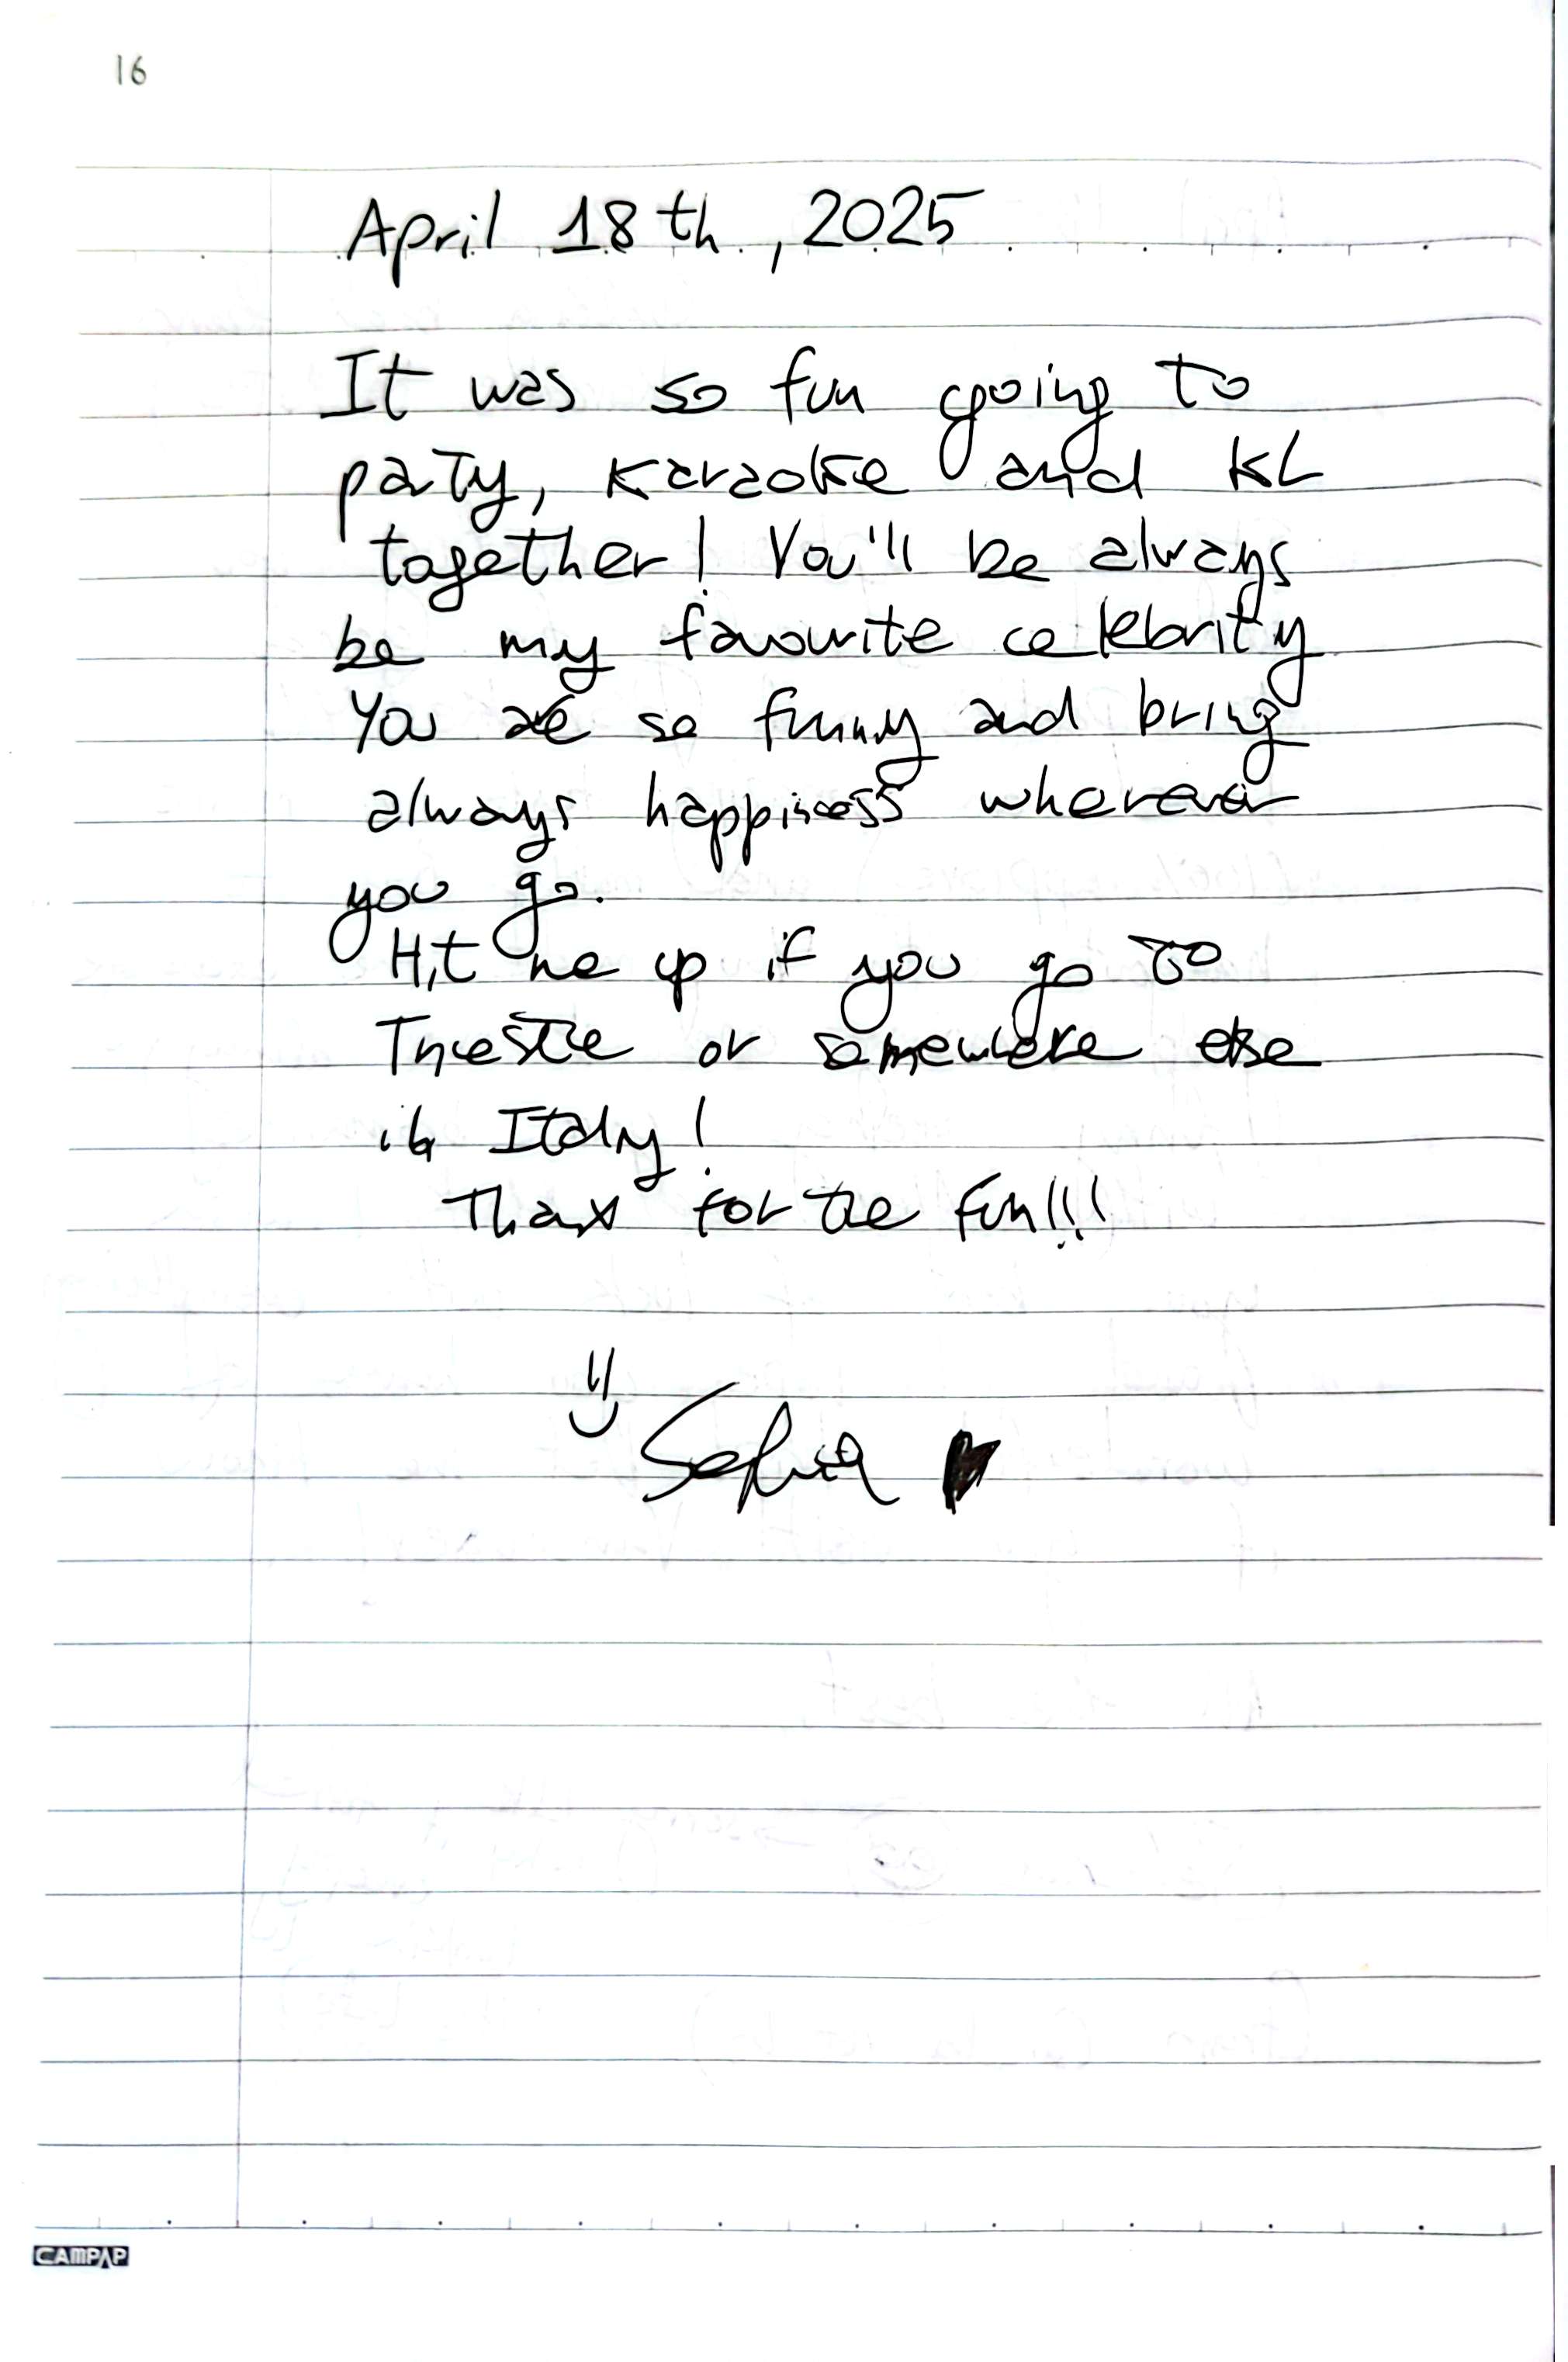 16
April 18th, 2025
It was so fun going to
party, karaoke and KL
together! You'll be always
be my favourite celebrity
You are so funny and bring
always happiness wherever
you go.
Hit me up if you go to
Trieste or somewhere else
in Italy!
Thanx for the fun!!!
Sofia
CAMPAP